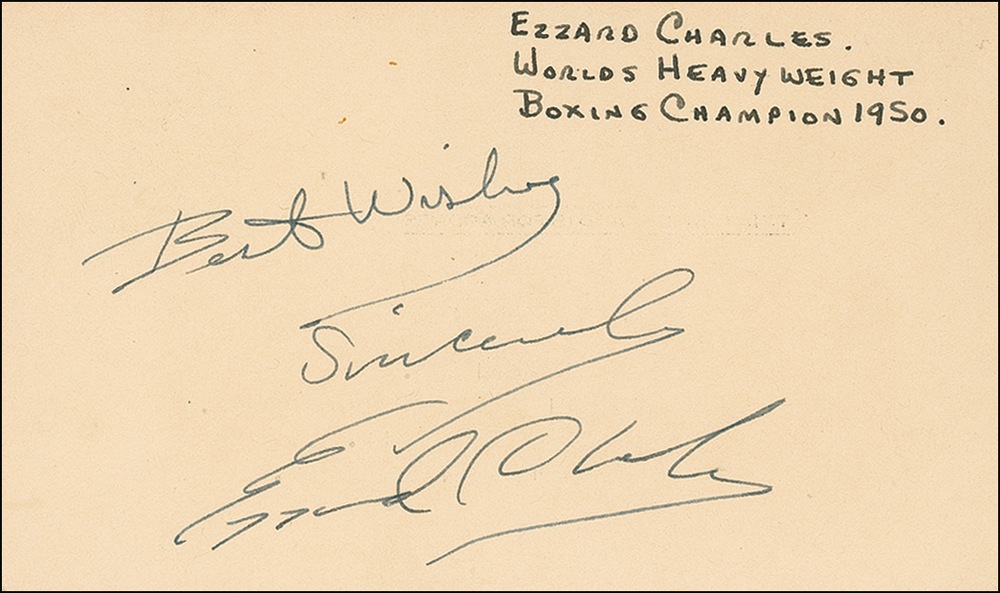 EZZARD CHARLES.
WORLDS HEAVY WEIGHT
BOXING CHAMPION 1950.
Best Wishes
Sincerely
Ezzard Charles